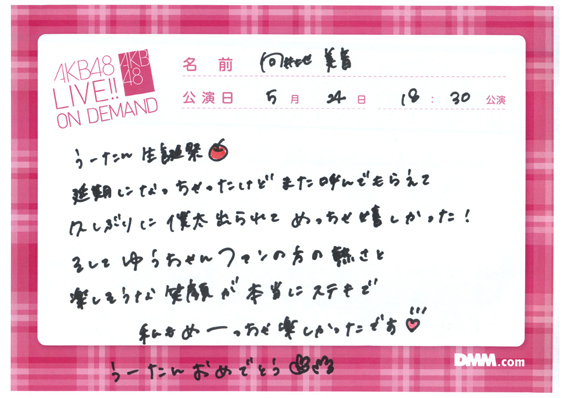 AKB48
LIVE!!
ON DEMAND
AKB
48
名前 美音
公演日 5月24日 18:30公演
うーたん 生誕祭
延期になっちゃったけど また呼んでもらえて
久しぶりに 僕太 出られて めっちゃ嬉しかった！
そして ゆうちゃん ファンの方の 熱さと
楽しそうな 笑顔が 本当に ステキで
私も めーっちゃ 楽しかったです
うーたん おめでとう
DMM.com